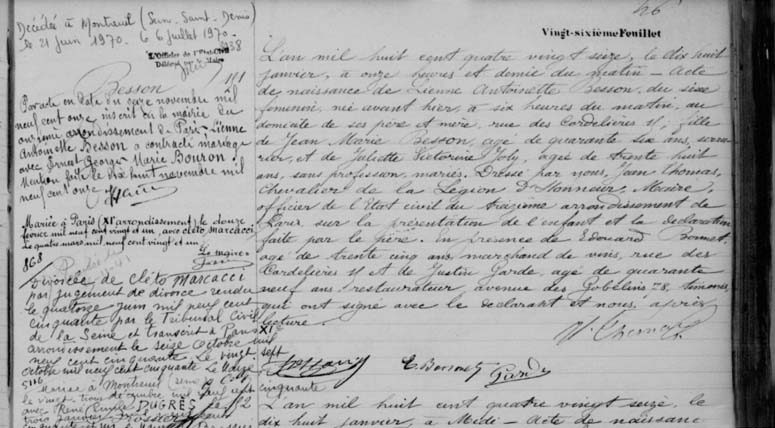 Décédée à Montreuil (Seine-Saint-Denis)
le 21 juin 1970. le 6 juillet 1970.
L'Officier de l'Etat-Civil
Délégué par le Maire
Besson
Par acte en date du onze novembre mil
neuf cent onze inscrit à la mairie du
onzième arrondissement de Paris, Lienne
Antoinette Besson a contracté mariage
avec Ernest George Marie Bouron.
Mention faite le dix huit novembre mil
neuf cent onze
Mariée à Paris (XI arrondissement) le douze
février mil neuf cent vingt et un, avec Cléto, Marcacci
Le quatre mars mil neuf cent vingt et un
Le maire
868
Divorcée de Cléto Marcacci
par jugement de divorce rendu
le quatorze juin mil neuf cent
cinquante par le Tribunal Civil
de la Seine et transcrit à Paris XIe
arrondissement le seize Octobre mil
neuf cent cinquante. Le vingt sept
Octobre mil neuf cent cinquante
5116
Mariée à Montreuil
le vingt trois décembre mil neuf cent cinquante
avec René DUGRÈS Le
trois janvier
26
Vingt-sixième Feuillet
L'an mil huit cent quatre vingt seize, le dix huit
janvier, à onze heures et demie du matin – Acte
de naissance de Lienne Antoinette Besson, du sexe
féminin, née avant hier, à six heures du matin, au
domicile de ses père et mère, rue des Cordelières 41; fille
de Jean Marie Besson, agé de quarante six ans, serru-
rier, et de Juliette Victorine Joly, agée de trente huit
ans, sans profession, mariés. Dressé par nous, Jean Thomas,
Chevalier de la Légion D'Honneur, Maire,
officier de l'Etat civil du treizième arrondissement de
Paris, sur la présentation de l'enfant et la déclaration
faite par le père. En présence de Edouard Bonnet,
agé de trente cinq ans, marchand de vins, rue des
Cordelières 41 et de Justin Garde, agé de quarante
neuf ans, restaurateur, avenue des Gobelins 78, témoins
qui ont signé avec le déclarant et nous, après
lecture.
L'an mil huit cent quatre vingt seize, le
dix huit janvier, à Midi – Acte de naissance